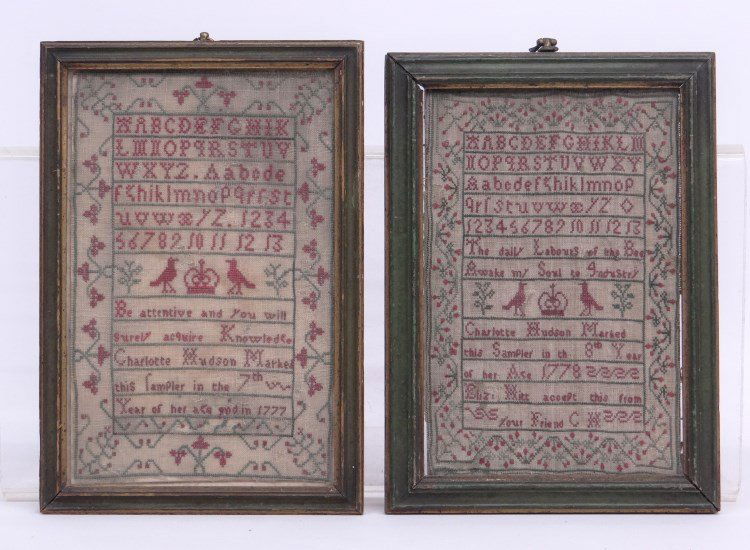 ABCDEFGHIK
LMNOPQRSTUV
WXYZ. Aabcde
fghiklmnopqrſst
uvwxyz. 1234
5 6 7 8 9 10 11 12 13
Be attentive and you will
surely acquire Knowledge
Charlotte Hudson Marked
this sampler in the 7th
Year of her age in 1777
ABCDEFGHIKLM
NOPQRSTUVWXY
Aabcdefghiklmnop
qrſstuvwxyz
1 2 3 4 5 6 7 8 9 10 11 12 13
The daily Labours of the Bee
Awake my Soul to Industry
Charlotte Hudson Marked
this Sampler in th 8th Year
of her Age 1778
Eliz: accept this from
your Friend C H